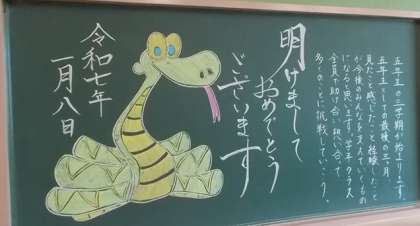 五年生の三学期が始まります。
五年生としての最後の三ヶ月、
見たこと感じたこと経験したこと
が今後のみんなを支えていくもの
になると思います。学年・クラス
全員で助け合い、祝い合って
多くのことに挑戦していこう。
明けまして
おめでとう
ございます
令和七年
一月八日